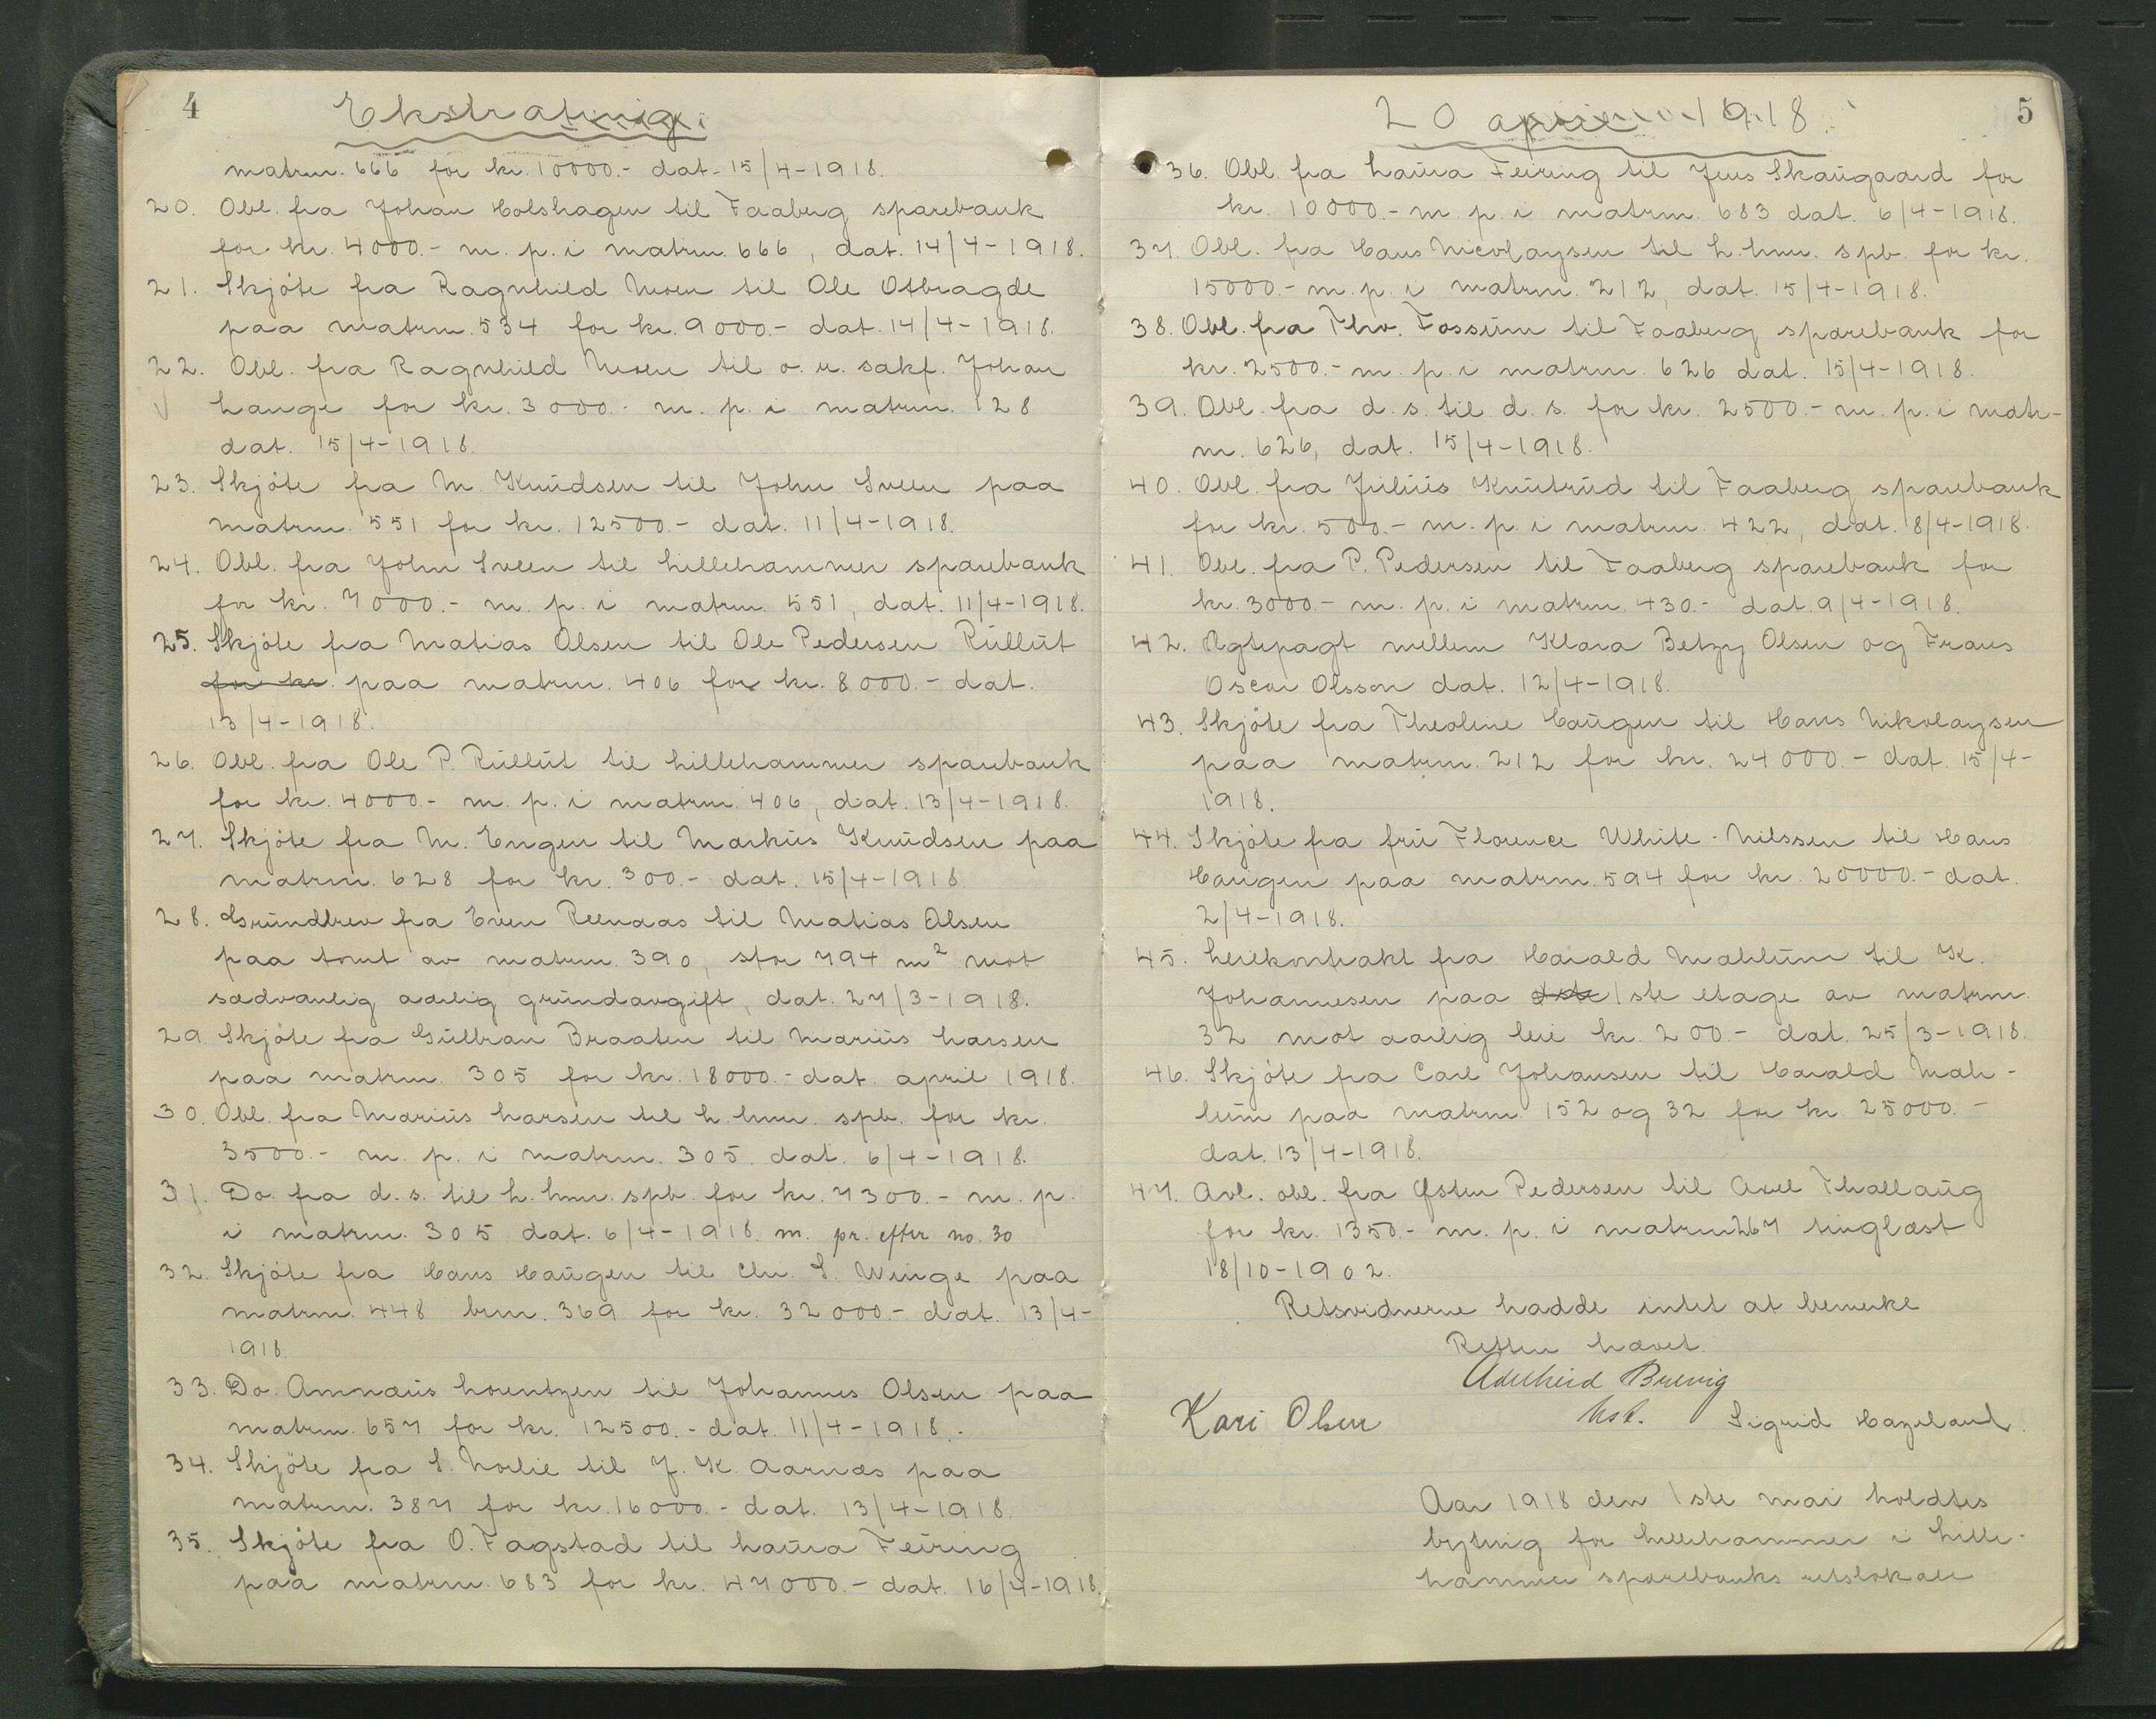 4
Ekstrating
matrn. 666 for kr. 10000.- dat. 15/4-1918.
20. Obl. fra Johan Holshagen til Faaberg sparebank
for kr. 4000.- m. p. i matrn. 666, dat. 14/4-1918.
21. Skjöte fra Ragnhild Moen til Ole Otbragde
paa matrn. 534 for kr. 9000.- dat. 14/4-1918.
22. Obl. fra Ragnhild Moen til o. r. sakf. Johan
Lange for kr. 3000.- m. p. i matrn. 128
dat. 15/4-1918.
23. Skjöte fra M. Knudsen til John Sveen paa
matrn. 551 for kr. 12500.- dat. 11/4-1918.
24. Obl. fra John Sveen til Lillehammer sparebank
for kr. 7000.- m. p. i matrn. 551, dat. 11/4-1918.
25. Skjöte fra Matias Olsen til Ole Pedersen Rullut
for kr. paa matrn. 406 for kr. 8000.- dat.
13/4-1918.
26. Obl. fra Ole P. Rullut til Lillehammer sparebank
for kr. 4000.- m. p. i matrn. 406, dat. 13/4-1918.
27. Skjöte fra M. Engen til Markus Knudsen paa
matrn. 628 for kr. 300.- dat. 15/4-1918.
28. Grundbrev fra Even Reenaas til Matias Olsen
paa tomt av matrn. 390, stor 794 m² mot
sædvanlig aarlig grundavgift, dat. 27/3-1918.
29. Skjöte fra Gulbran Braaten til Marius Larsen
paa matrn. 305 for kr. 18000.- dat. april 1918.
30. Obl. fra Marius Larsen til L.hmr. spb. for kr.
3500.- m. p. i matrn. 305. dat. 6/4-1918.
31. Do. fra d. s. til L.hmr. spb. for kr. 7300.- m. p.
i matrn. 305 dat. 6/4-1918. m. pr. efter no. 30
32. Skjöte fra Hans Haugen til Chr. S. Winge paa
matrn. 448 brn. 369 for kr. 32000.- dat. 13/4-
1918.
33. Do. Amnæus Lorentzen til Johannes Olsen paa
matrn. 657 for kr. 12500.- dat. 11/4-1918.-
34. Skjöte fra S. Norlie til J. K. Aarnæs paa
matrn. 387 for kr. 16000.- dat. 13/4-1918.
35. Skjöte fra O. Fagstad til Laura Feiring
paa matrn. 683 for kr. 47000.- dat. 16/4-1918.
20 april 1918.
5
36. Obl. fra Laura Feiring til Jens Skaugaard for
kr. 10000.- m. p. i matrn. 683 dat. 6/4-1918.
37. Obl. fra Hans Nicolaysen til L.hmr. spb. for kr.
15000.- m. p. i matrn. 212, dat. 15/4-1918.
38. Obl. fra Thv. Fossum til Faaberg sparebank for
kr. 2500.- m. p. i matrn. 626 dat. 15/4-1918.
39. Obl. fra d. s. til d. s. for kr. 2500.- m. p. i matr-
n. 626, dat. 15/4-1918.
40. Obl. fra Julius Knutrud til Faaberg sparebank
for kr. 500.- m. p. i matrn. 422, dat. 8/4-1918.
41. Obl. fra P. Pedersen til Faaberg sparebank for
kr. 3000.- m. p. i matrn. 430.- dat. 9/4-1918.
42. Ægtepagt mellem Klara Betzy Olsen og Frans
Oscar Olsson dat. 12/4-1918.
43. Skjöte fra Theoline Haugen til Hans Nikolaysen
paa matrn. 212 for kr. 24000.- dat. 15/4-
1918.
44. Skjöte fra fru Florence White-Nilssen til Hans
Haugen paa matrn. 594 for kr. 20000.- dat.
2/4-1918.
45. Leiekontrakt fra Harald Mahlum til K.
Johannesen paa 1ste etage av matrn.
32 mot aarlig leie kr. 200.- dat. 25/3-1918.
46. Skjöte fra Carl Johansen til Harald Mah-
lum paa matrn. 152 og 32 for kr. 25000.-
dat. 13/4-1918.
47. Avl. obl. fra Østen Pedersen til Axel Thallaug
for kr. 1350.- m. p. i matrn 267 tinglæst
18/10-1902.
Retsvidnerne hadde intet at bemerke
Retten hævet.
Adelheid Brevig
Kari Olsen
Sigrid Hazeland.
Aar 1918 den 1ste mai holdtes
byting for Lillehammer i Lille-
hammer sparebanks retslokale